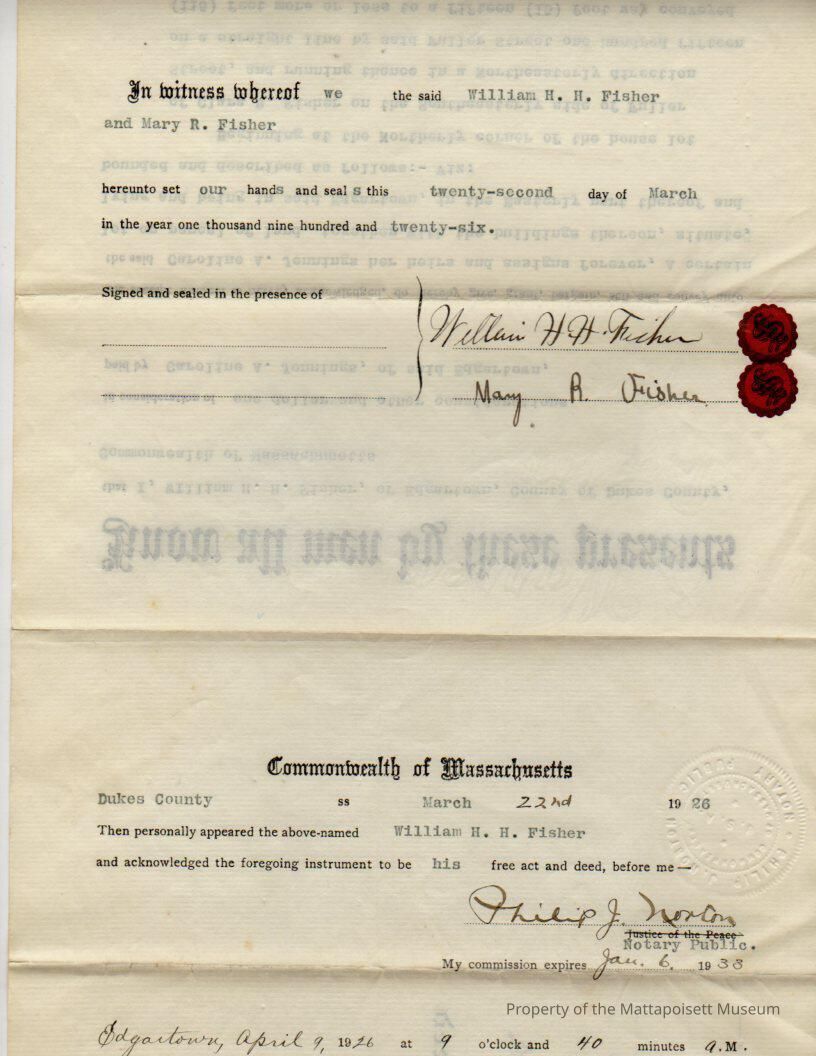 In witness whereof we the said William H. H. Fisher
and Mary R. Fisher
hereunto set our hands and seal s this twenty-second day of March
in the year one thousand nine hundred and twenty-six.
Signed and sealed in the presence of
William H. H. Fisher
Mary R. Fisher
Commonwealth of Massachusetts
Dukes County ss March 22nd 19 26
Then personally appeared the above-named William H. H. Fisher
and acknowledged the foregoing instrument to be his free act and deed, before me—
Philip J. Norton
Justice of the Peace
Notary Public.
My commission expires Jan. 6, 1933
Property of the Mattapoisett Museum
Edgartown, April 9, 1926 at 9 o'clock and 40 minutes A.M.